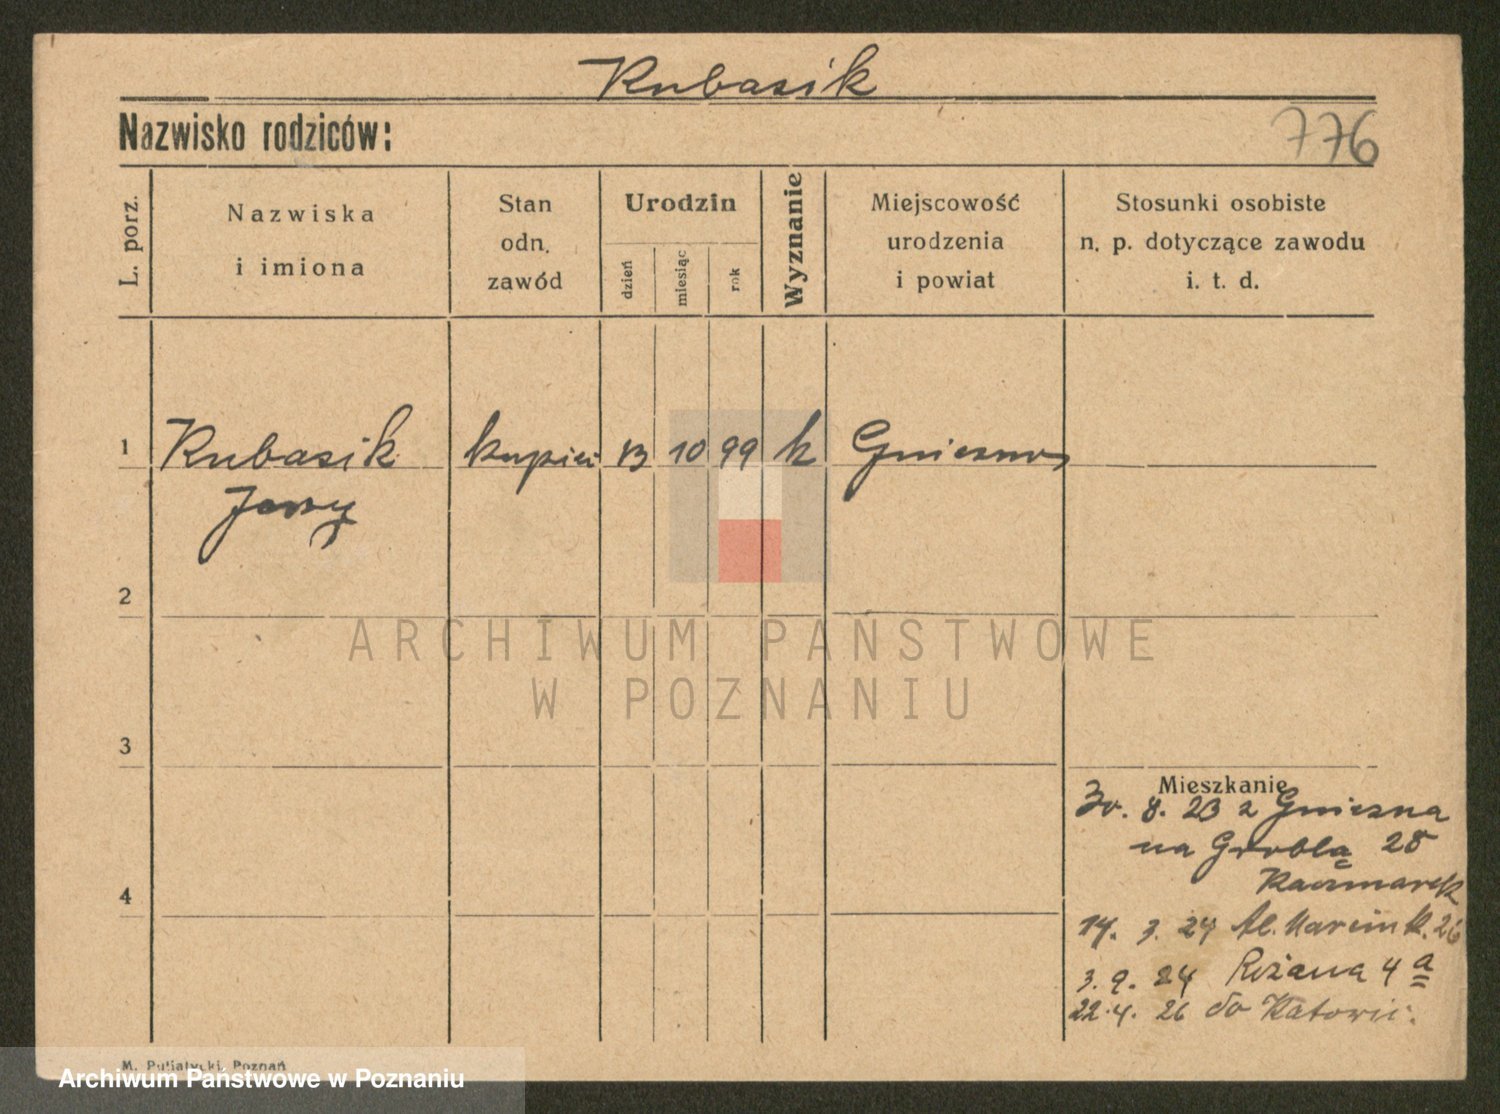 Kubasik
Nazwisko rodziców:
776
L. porz.
Nazwiska
i imiona
Stan
odn.
zawód
Urodzin
dzień
miesiąc
rok
Wyznanie
Miejscowość
urodzenia
i powiat
Stosunki osobiste
n. p. dotyczące zawodu
i. t. d.
1
Kubasik
Jerzy
kupiec
13
10
99
k
Gniezno
2
ARCHIWUM PAŃSTWOWE
W POZNANIU
3
Mieszkanie
30. 8. 23 z Gniezna
na Groblą 28
Kaczmarek
4
14. 3. 24 Al. Marcink. 26
3. 9. 24 Różana 4 a
22. 4. 26 do Katowic.
M. Putiatycki, Poznań
Archiwum Państwowe w Poznaniu